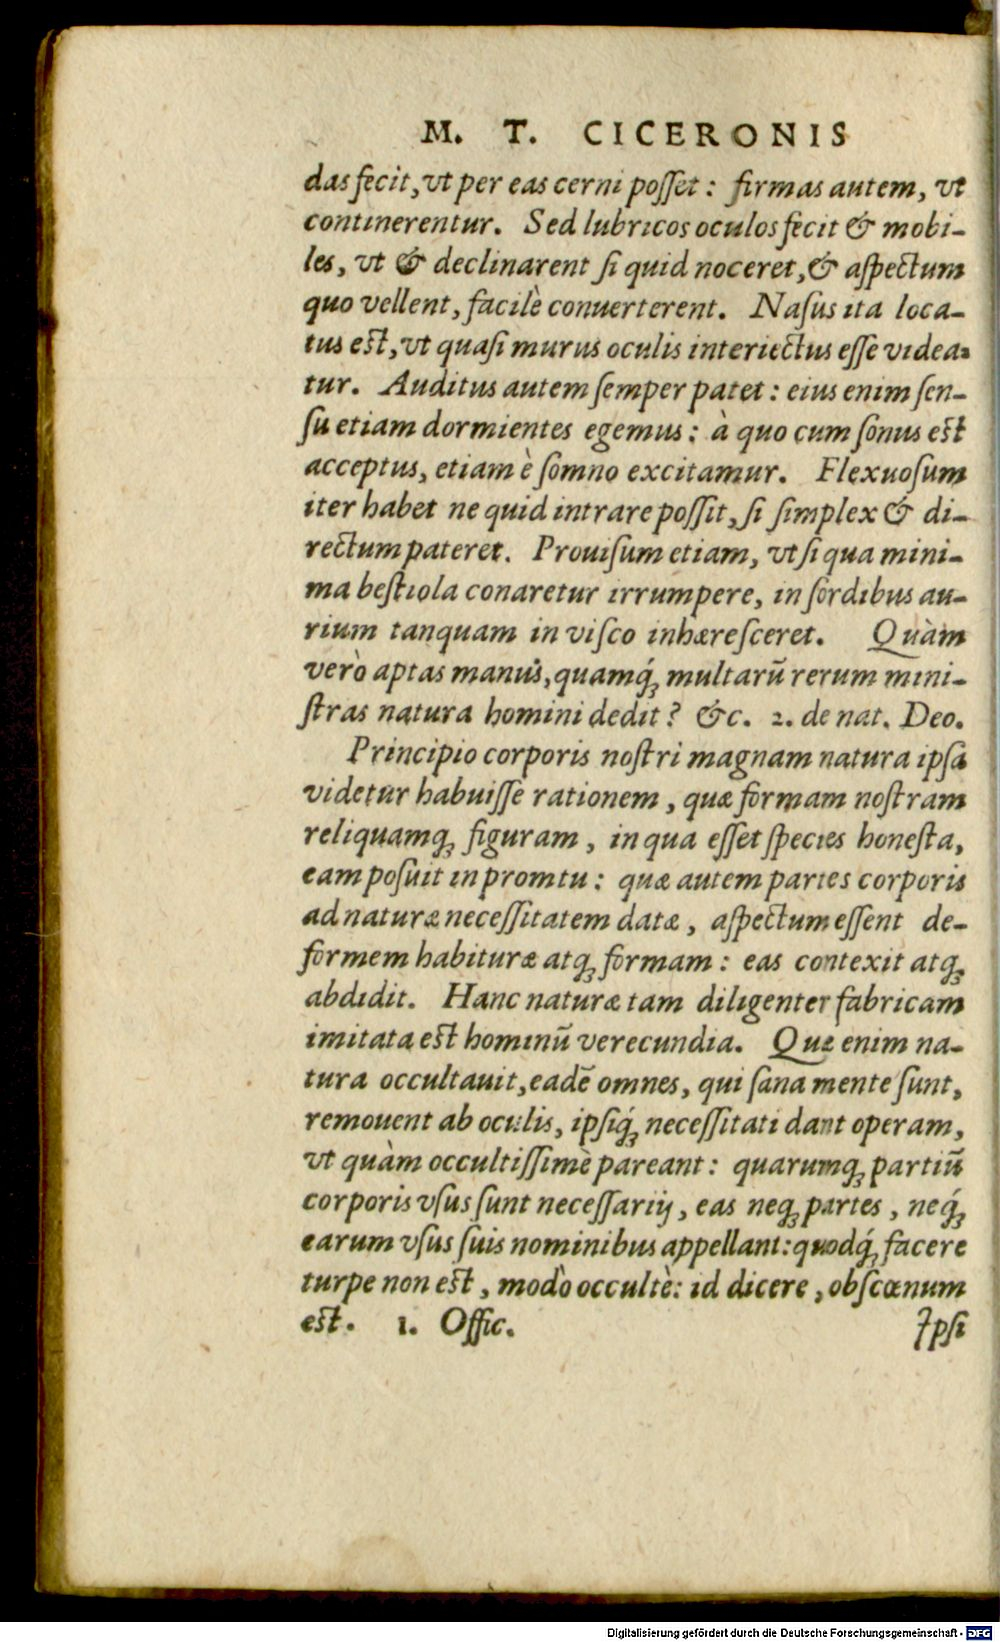 M. T. CICERONIS
das fecit, vt per eas cerni posset: firmas autem, vt
continerentur. Sed lubricos oculos fecit & mobi-
les, vt & declinarent si quid noceret, & aspectum
quo vellent, facilè conuerterent. Nasus ita loca-
tus est, vt quasi murus oculis interiectus esse videa-
tur. Auditus autem semper patet: eius enim sen-
su etiam dormientes egemus: à quo cum sonus est
acceptus, etiam è somno excitamur. Flexuosum
iter habet ne quid intrare possit, si simplex & di-
rectum pateret. Prouisum etiam, vt si qua mini-
ma bestiola conaretur irrumpere, in sordibus au-
rium tanquam in visco inhæresceret. Quàm
verò aptas manus, quamq́; multarũ rerum mini-
stras natura homini dedit? &c. 2. de nat. Deo.
Principio corporis nostri magnam natura ipsa
videtur habuisse rationem, quæ formam nostram
reliquamq; figuram, in qua esset species honesta,
eam posuit in promtu: quæ autem partes corporis
ad naturæ necessitatem datæ, aspectum essent de-
formem habituræ atq; formam: eas contexit atq;
abdidit. Hanc naturæ tam diligenter fabricam
imitata est hominũ verecundia. Quæ enim na-
tura occultauit, eadẽ omnes, qui sana mente sunt,
remouent ab oculis, ipsiq́; necessitati dant operam,
vt quàm occultissimè pareant: quarumq; partiũ
corporis vsus sunt necessarij, eas neq; partes, neq́;
earum vsus suis nominibus appellant: quodq́; facere
turpe non est, modò occultè: id dicere, obscœnum
est. 1. Offic. Ipsi
Digitalisierung gefördert durch die Deutsche Forschungsgemeinschaft - DFG